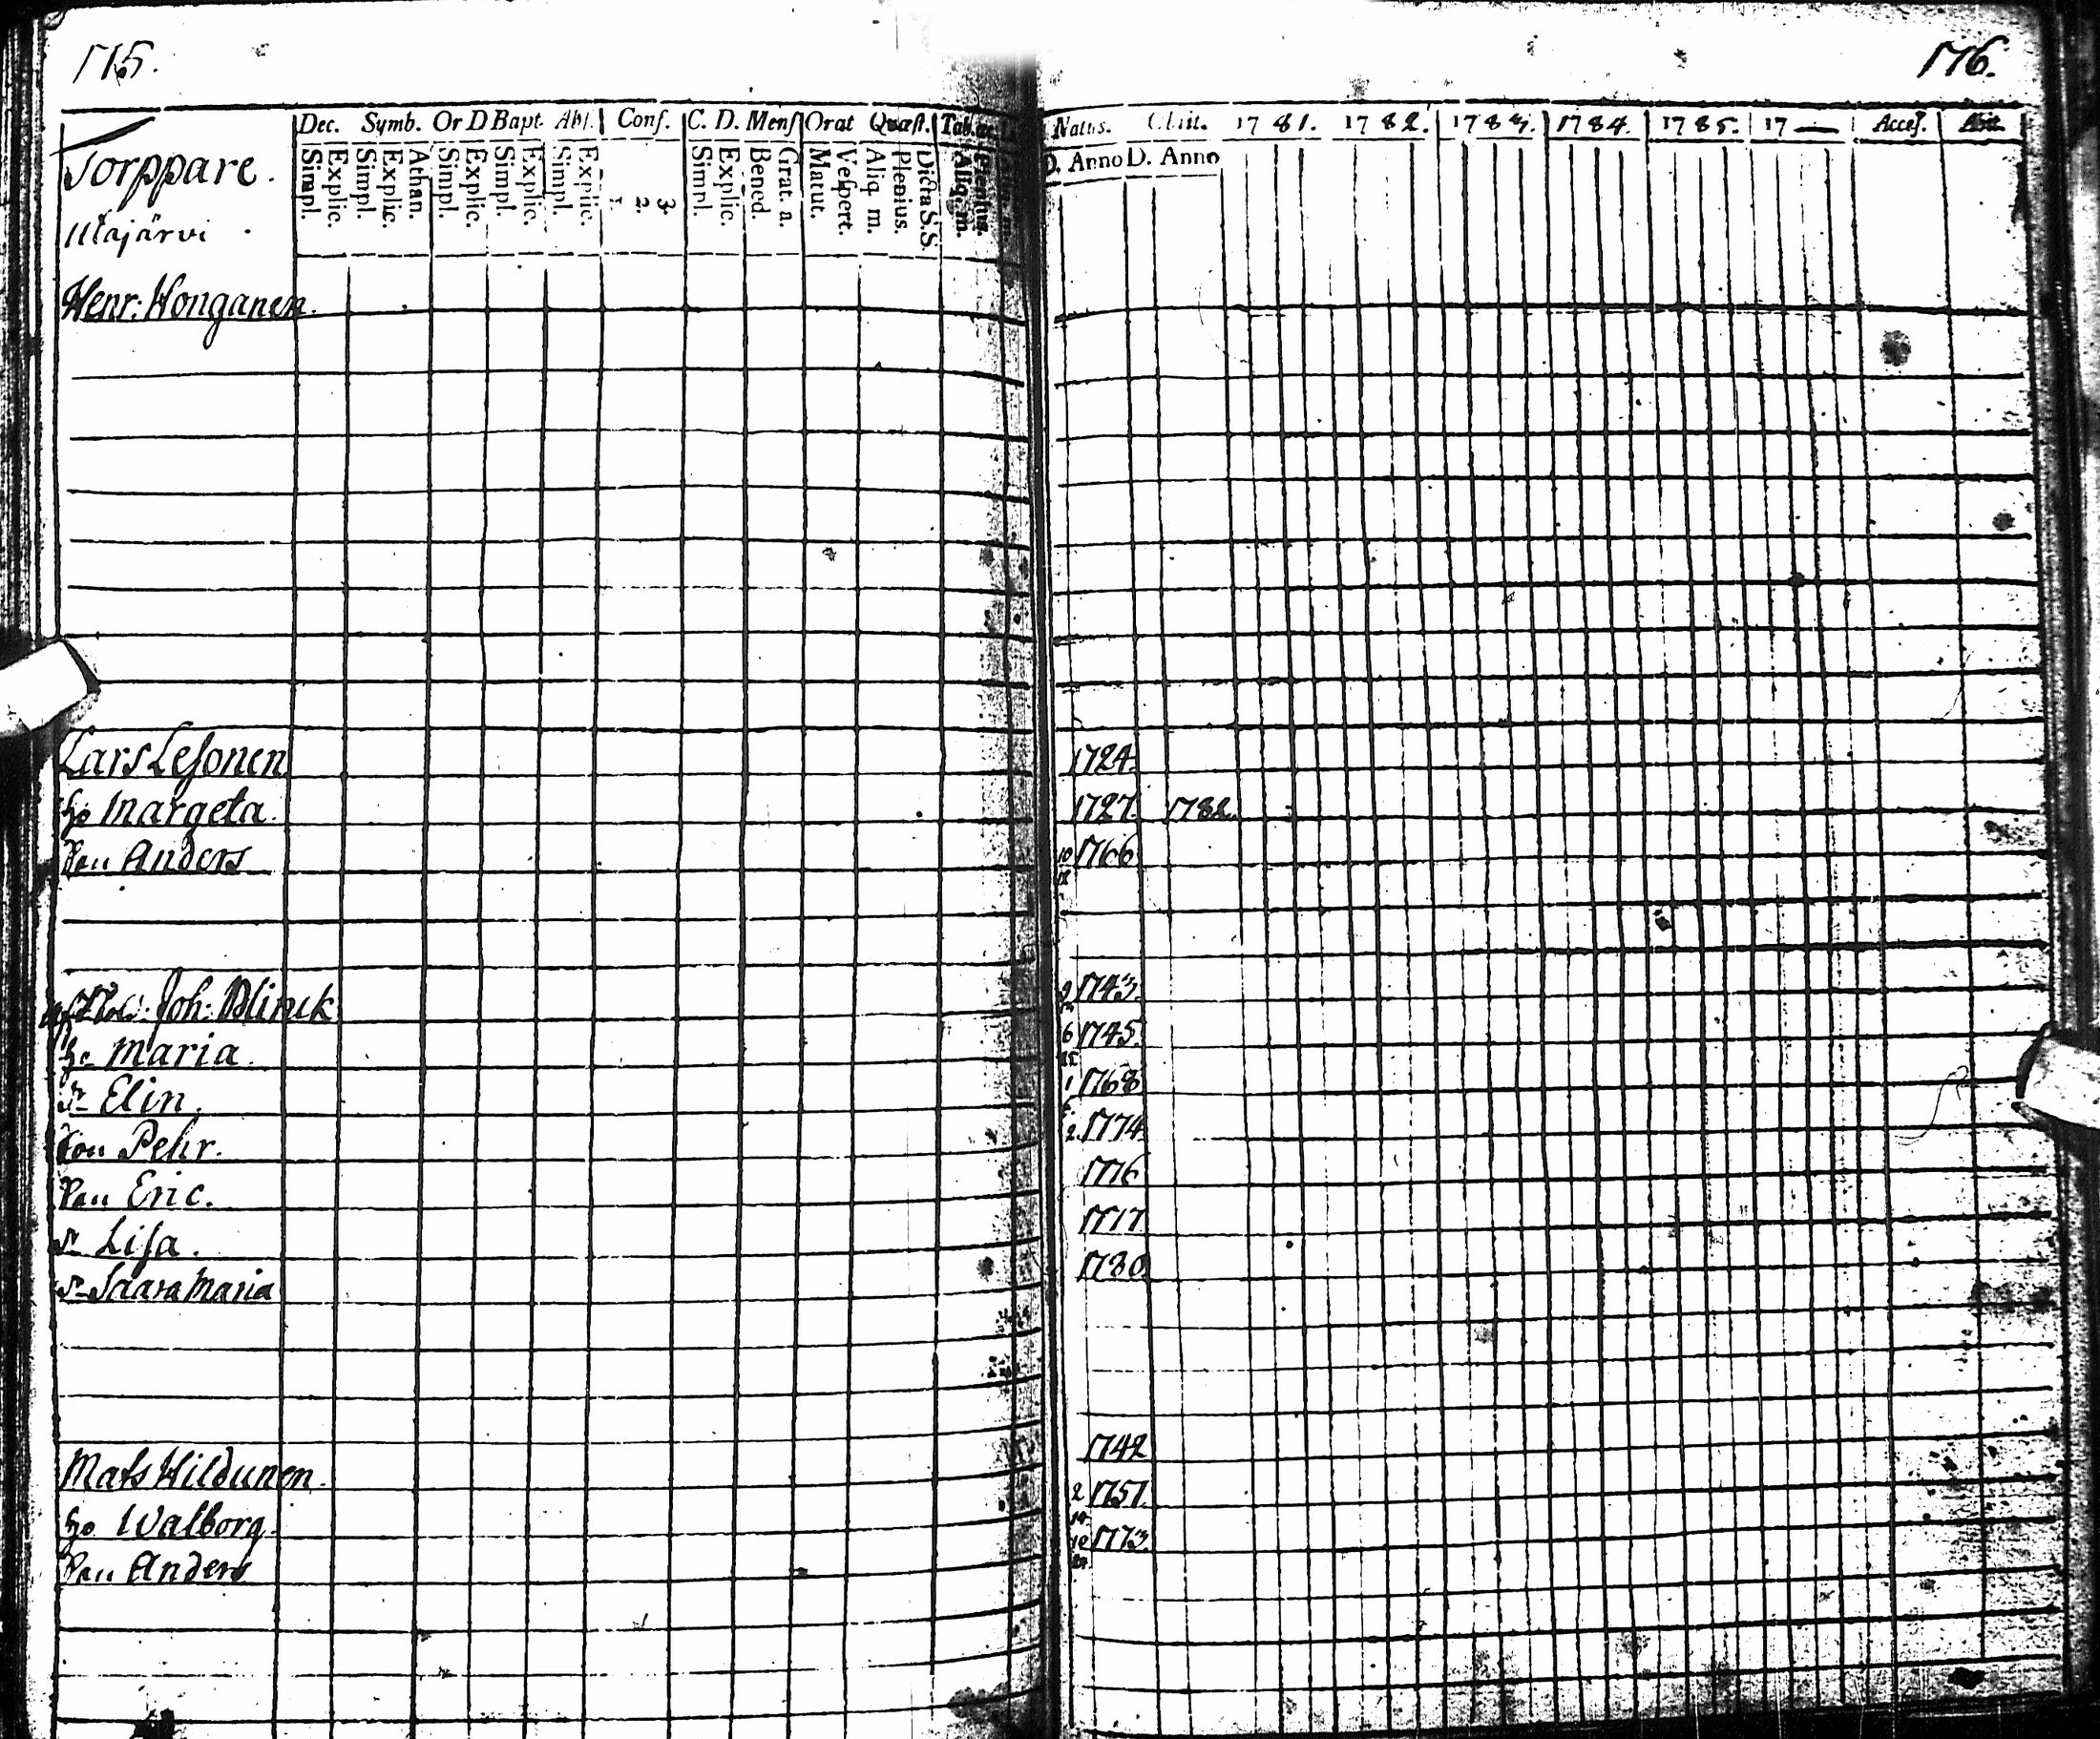 175.
Dec. Symb. Or D Bapt. Abs. Conf. C. D. Mens Orat Quæst.
Simpl. Explic. Simpl. Explic. Athan. Simpl. Explic. Simpl. Explic. Simpl. Explic. 1. 2. 3. Simpl. Explic. Bened. Grat. a. Matut. Vespert. Aliq. m. Plenius. Dicta S.S. Aliq. m. Plenius.
Torppare.
Utajärvi
Henr: Honganen.
Lars Lesonen
ho Margeta.
Son Anders
Joh: Blinck
ho Maria.
Dr Elin.
Son Pehr.
Son Eric.
Dr Lisa.
Dr Saara Maria
Mats Hildunen.
ho Walborg.
Son Anders
176.
Natus. Obiit. 1781. 1782. 1783. 1784. 1785. 17— Acces. Abit.
D. Anno D. Anno
1724.
1727. 1782.
10 1766
18
9 1743.
6 1745.
1 1768
2. 1774
1776
1777
1780
1742
2 1751.
14
10 1773.